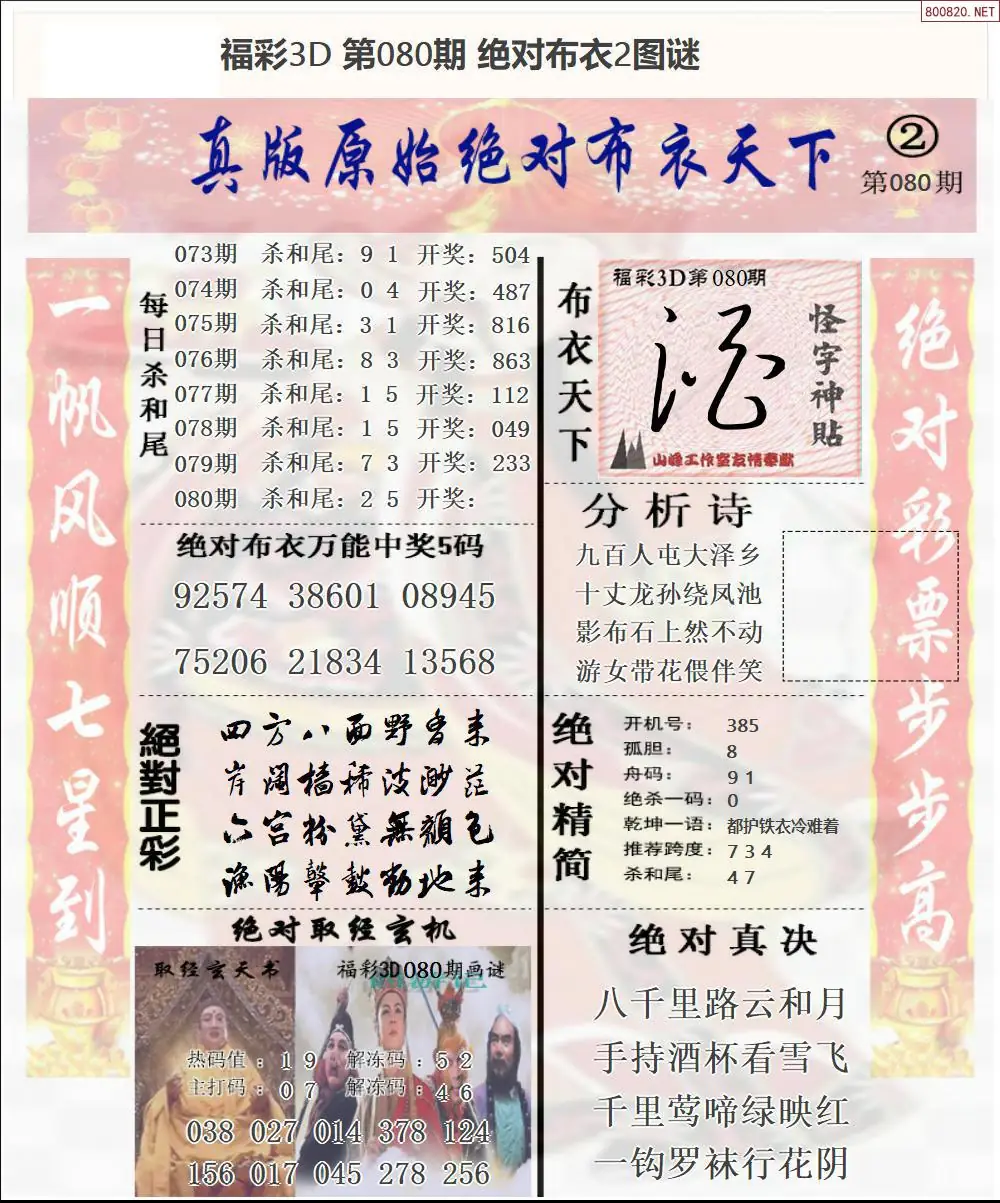 800820.NET
福彩3D 第080期 绝对布衣2图谜
真版原始绝对布衣天下
②
第080期
一帆风顺七星到
每日杀和尾
073期 杀和尾：9 1 开奖：504
074期 杀和尾：0 4 开奖：487
075期 杀和尾：3 1 开奖：816
076期 杀和尾：8 3 开奖：863
077期 杀和尾：1 5 开奖：112
078期 杀和尾：1 5 开奖：049
079期 杀和尾：7 3 开奖：233
080期 杀和尾：2 5 开奖：
绝对布衣万能中奖5码
92574 38601 08945
75206 21834 13568
絕對正彩
四方八面野香来
岸阔樯稀波渺茫
六宫粉黛無顔色
渔陽鼙鼓動地来
绝对取经玄机
取经玄天书
福彩3D080期画谜
热码值：1 9 解冻码：5 2
主打码：0 7 解冻码：4 6
038 027 014 378 124
156 017 045 278 256
布衣天下
福彩3D第080期
怪字神贴
山峰工作室友情奉献
分析诗
九百人屯大泽乡
十丈龙孙绕凤池
影布石上然不动
游女带花偎伴笑
绝对精简
开机号：385
孤胆：8
舟码：9 1
绝杀一码：0
乾坤一语：都护铁衣冷难着
推荐跨度：7 3 4
杀和尾：4 7
绝对真决
八千里路云和月
手持酒杯看雪飞
千里莺啼绿映红
一钩罗袜行花阴
绝对彩票步步高